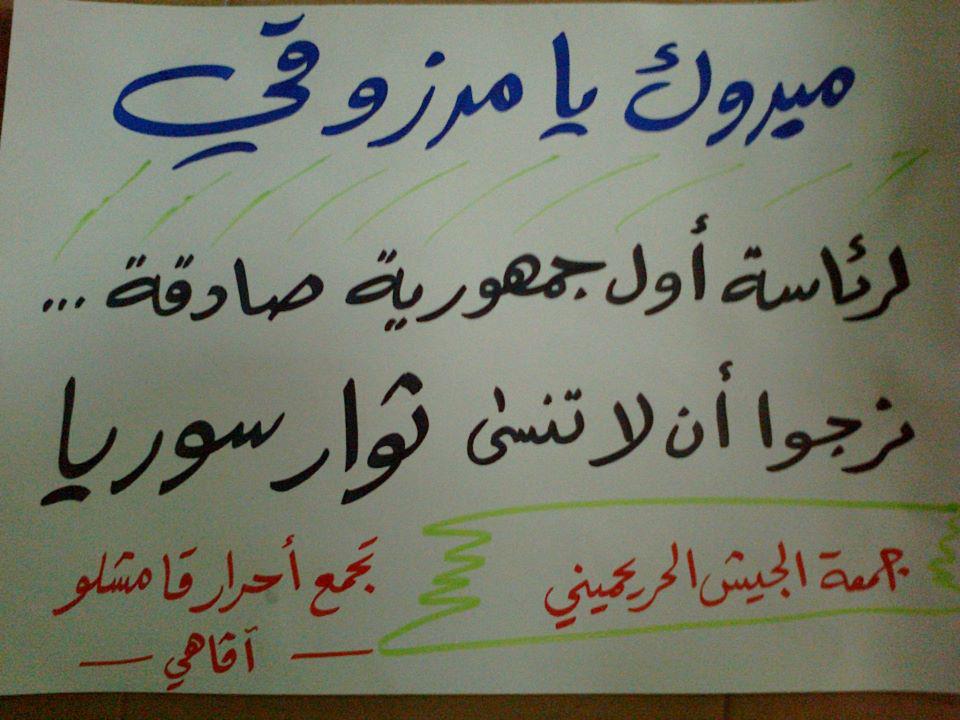 مبروك يا مرزوقي
لرئاسة أول جمهورية صادقة ...
نرجوا أن لا تنسى ثوار سوريا
جمعة الجيش الحر يحميني
تجمع أحرار قامشلو
— آفاهي —